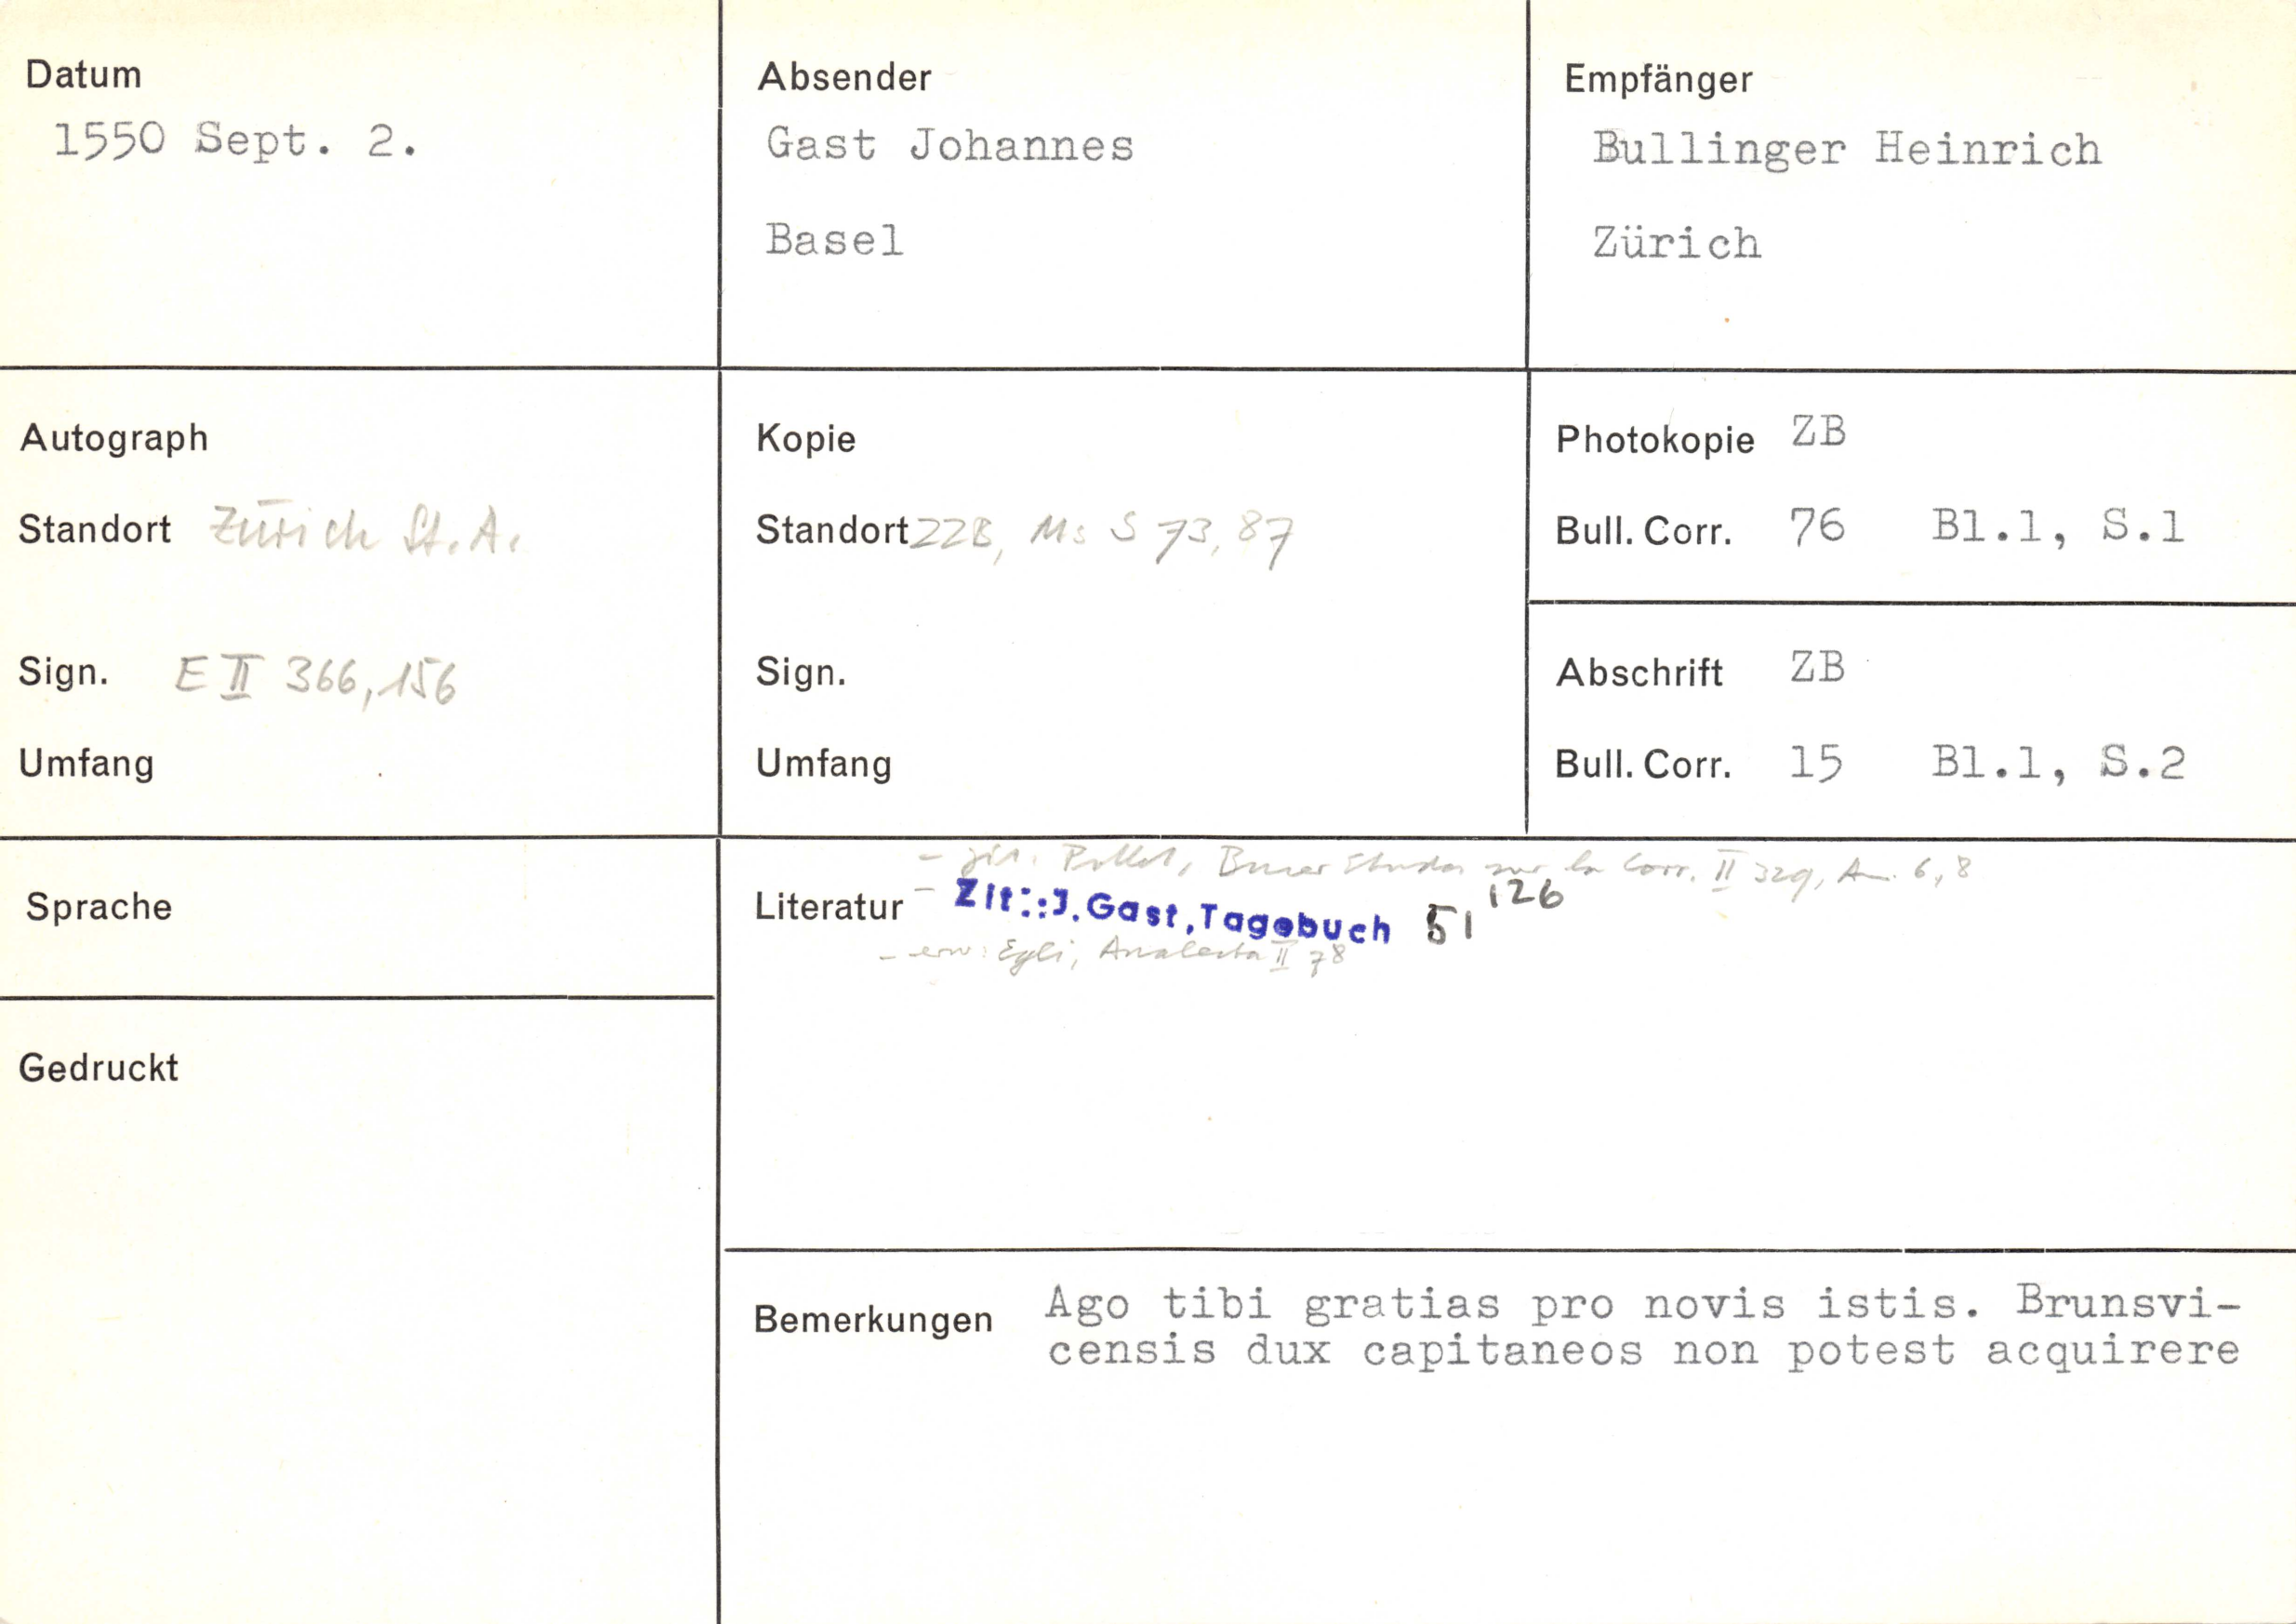 Datum
1550 Sept. 2.
Absender
Gast Johannes
Basel
Empfänger
Bullinger Heinrich
Zürich
Autograph
Standort Zürich St.A.
Sign. E II 366,156
Umfang
Kopie
Standort ZZB, Ms S 73, 87
Sign.
Umfang
Photokopie ZB
Bull. Corr. 76 Bl.1, S.1
Abschrift ZB
Bull. Corr. 15 Bl.1, S.2
Sprache
Gedruckt
- zit. Pollet, Bucer Etudes sur la Corr. II 329, A. 6, 8
Literatur - Zit.: J. Gast, Tagebuch 51 126
- erw: Egli, Analecta II 78
Bemerkungen Ago tibi gratias pro novis istis. Brunsvi-
censis dux capitaneos non potest acquirere